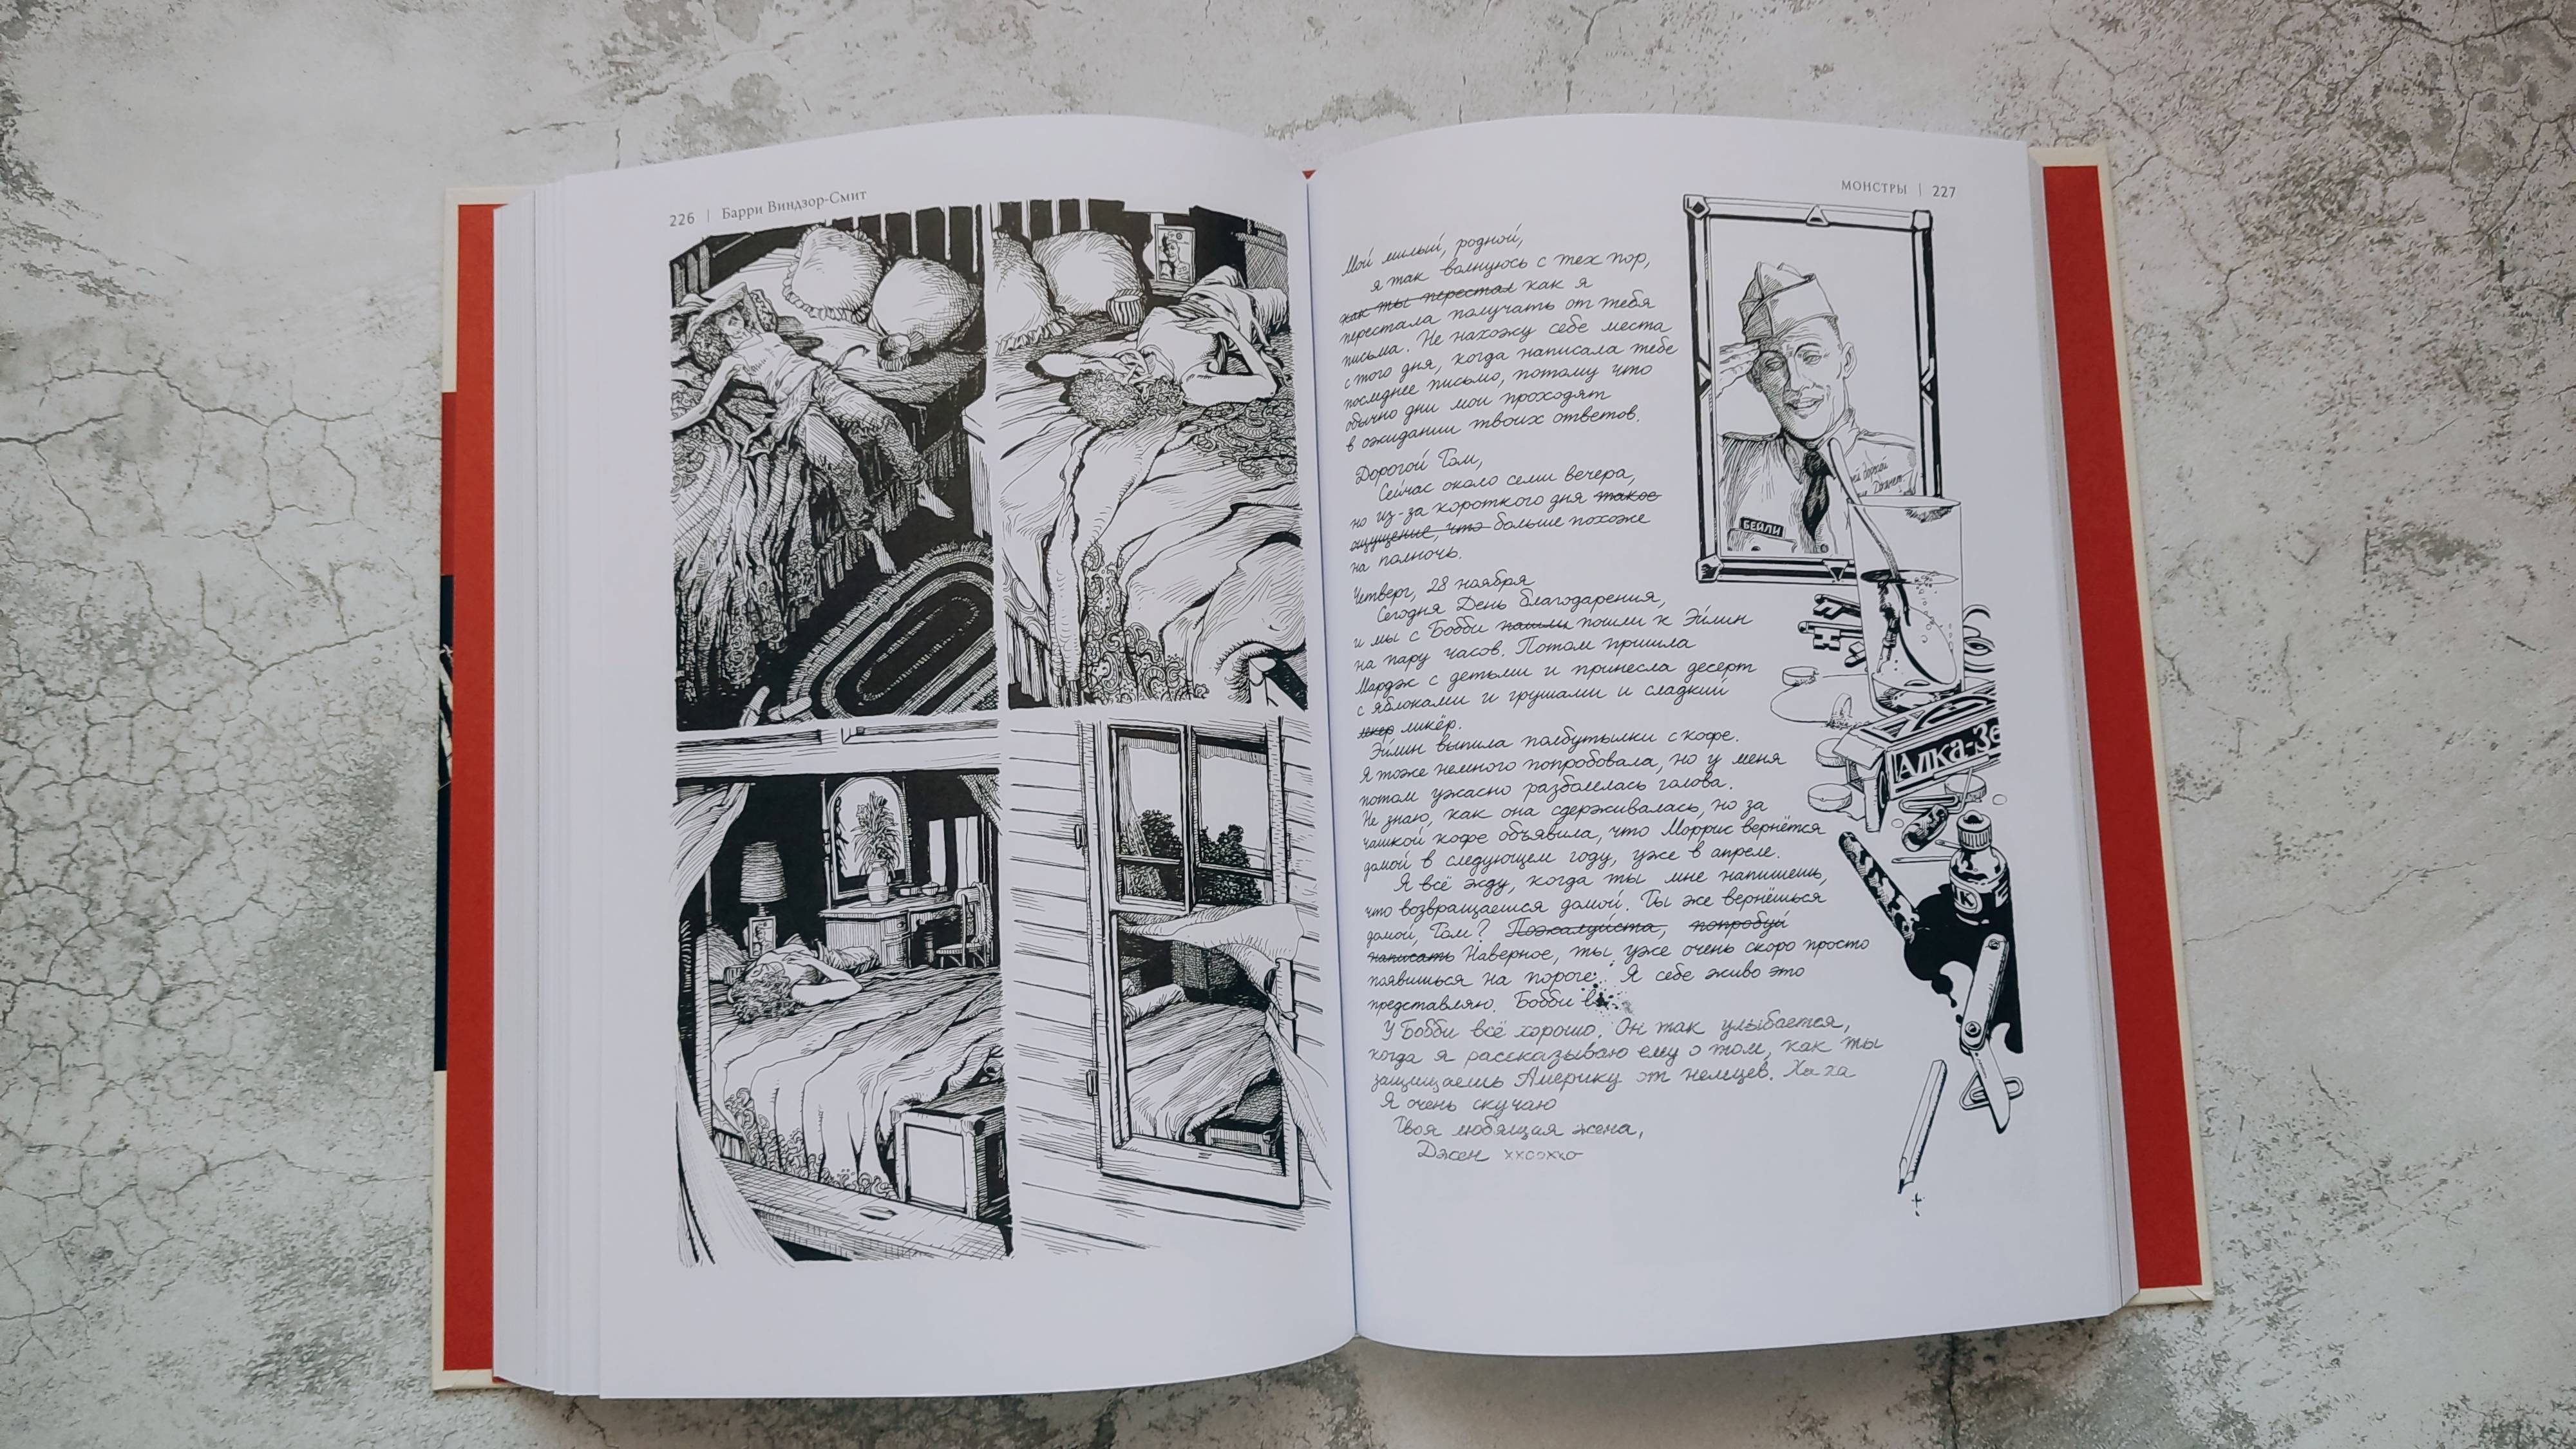 226 | Барри Виндзор-Смит
МОНСТРЫ | 227
Мой милый, родной,
я так волнуюсь с тех пор,
как ты перестал как я
перестала получать от тебя
письма. Не нахожу себе места
с того дня, когда написала тебе
последнее письмо, потому что
обычно дни мои проходят
в ожидании твоих ответов.
Дорогой Том,
Сейчас около семи вечера,
но из-за короткого дня такое
ощущение, что больше похоже
на полночь.
Четверг, 28 ноября
Сегодня День благодарения,
и мы с Бобби пошли к Эйлин
на пару часов. Потом пришла
Мардж с детьми и принесла десерт
с яблоками и грушами и сладкий
ликёр.
Эйлин выпила полбутылки с кофе.
Я тоже немного попробовала, но у меня
потом ужасно разболелась голова.
Не знаю, как она сдерживалась, но за
чашкой кофе объявила, что Моррис вернётся
домой в следующем году, уже в апреле.
Я всё жду, когда ты мне напишешь,
что возвращаешься домой. Ты же вернёшься
домой, Том? Пожалуйста, попробуй
написать Наверное, ты уже очень скоро просто
появишься на пороге. Я себе живо это
представляю. Бобби в
У Бобби всё хорошо. Он так улыбается,
когда я рассказываю ему о том, как ты
защищаешь Америку от немцев. Ха ха
Я очень скучаю
Твоя любящая жена,
Джен ххоохо
БЕЙЛИ
АЛКА-ЗЕ
К